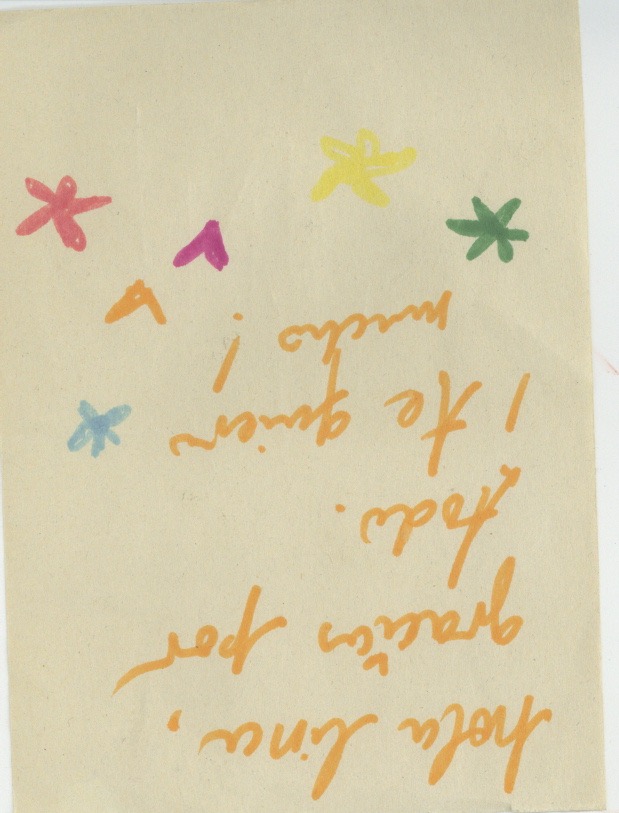 hola lina,
gracias por
todo.
¡te quiero
mucho!